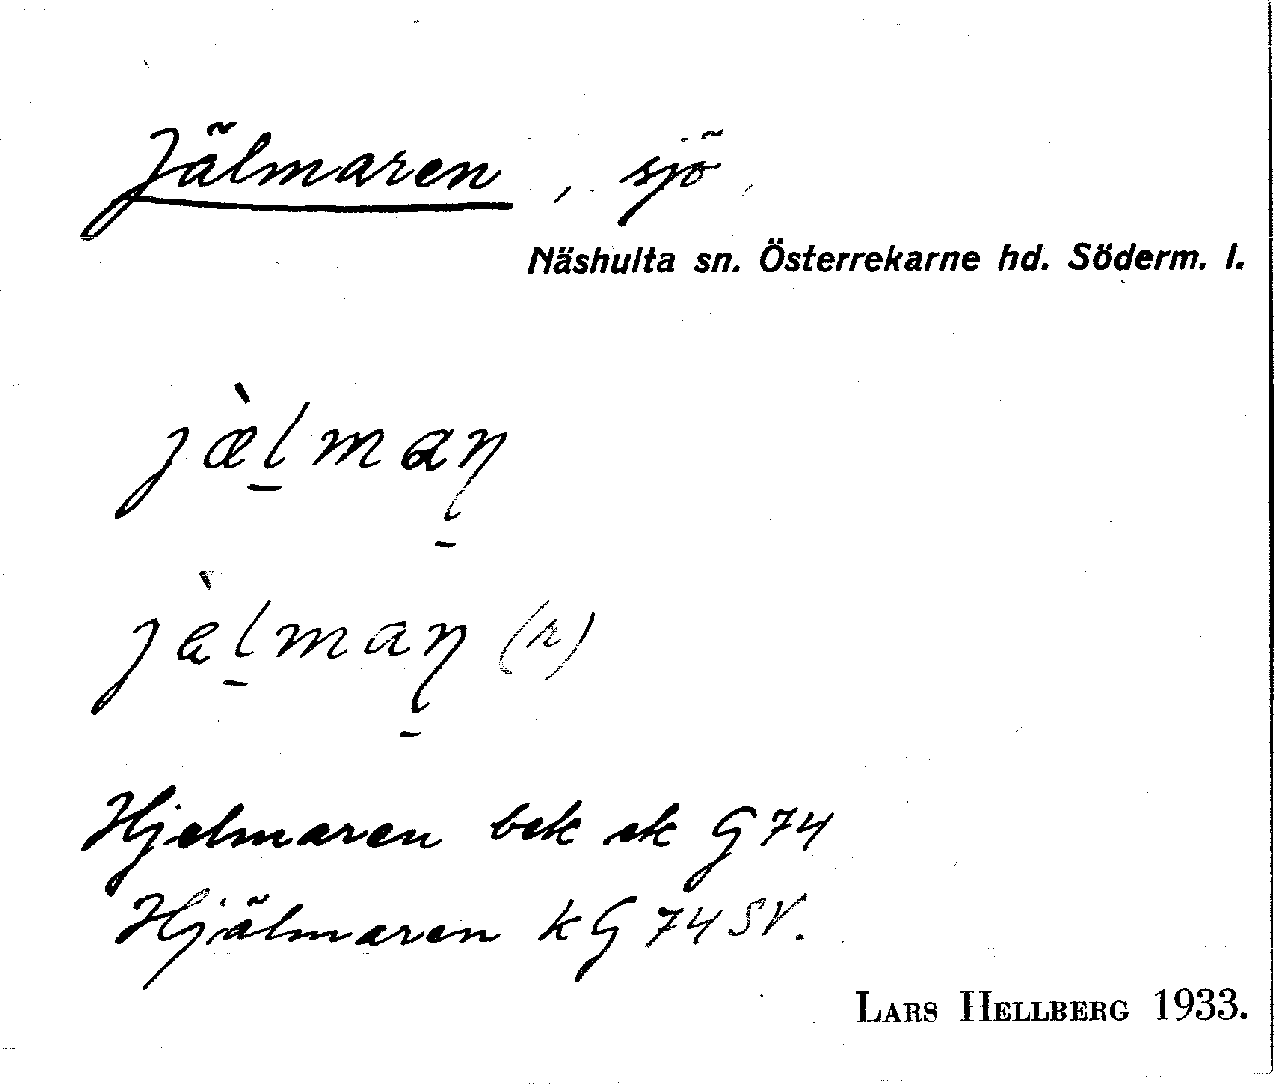 Jälmaren, sjö
Näshulta sn. Österrekarne hd. Söderm. l.
jæ̀l̠maɳ̠
jàl̠maɳ̠ (r)
Hjelmaren bek ek G 74
Hjälmaren k G 74 SV.
LARS HELLBERG 1933.